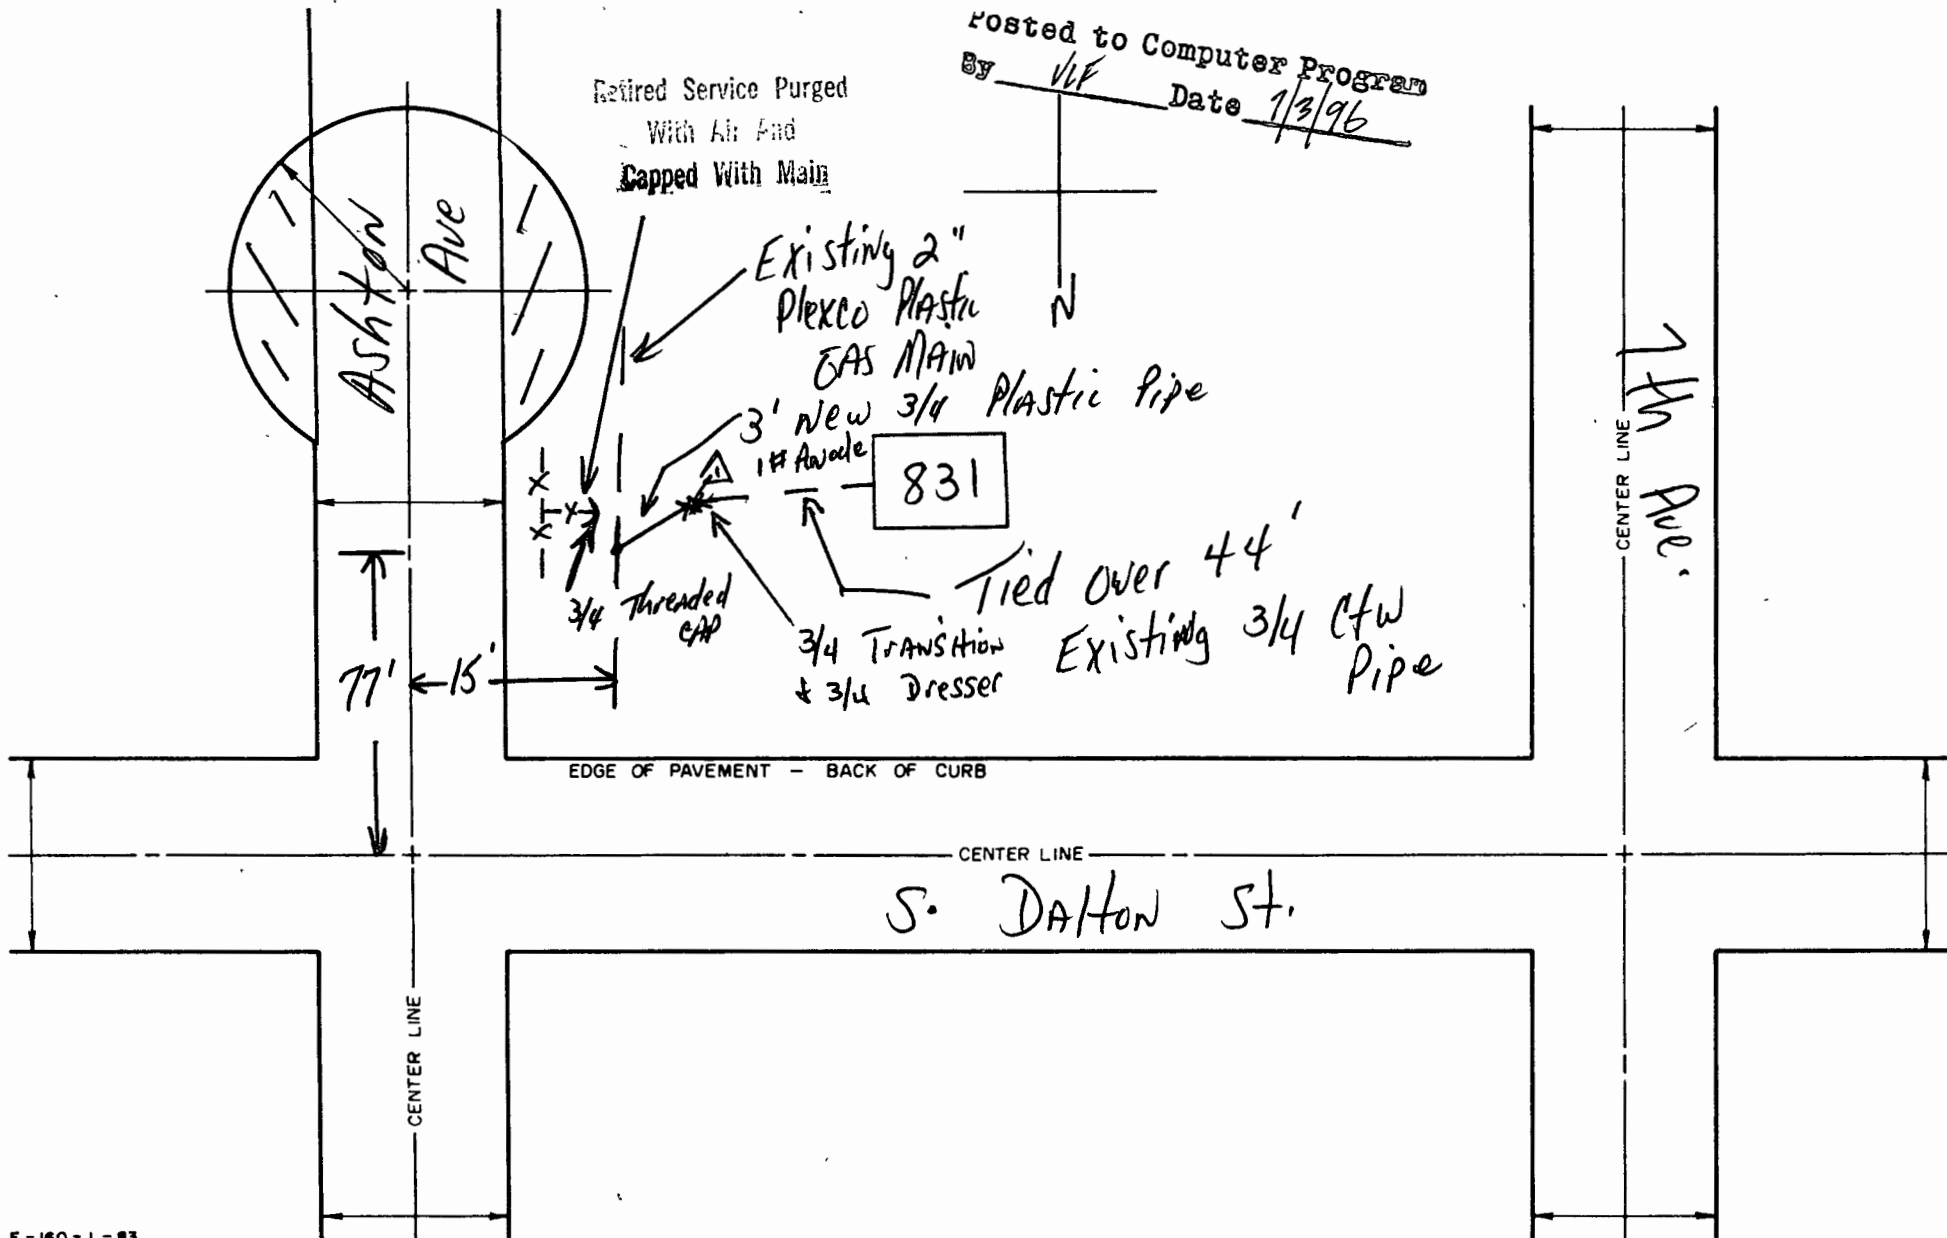 Posted to Computer Program
By VLF Date 1/3/96
Retired Service Purged
With Air And
Capped With Main
Ashton
Ave
Existing 2"
Plexco Plastic
GAS MAIN
N
3' New 3/4 Plastic Pipe
1# Anode
831
7th Ave.
CENTER LINE
3/4 Threaded
CAP
Tied Over 44'
Existing 3/4 Ctw
Pipe
3/4 Transition
& 3/4 Dresser
77'
15'
EDGE OF PAVEMENT – BACK OF CURB
CENTER LINE
S. Dalton St.
CENTER LINE
F-160-1-83